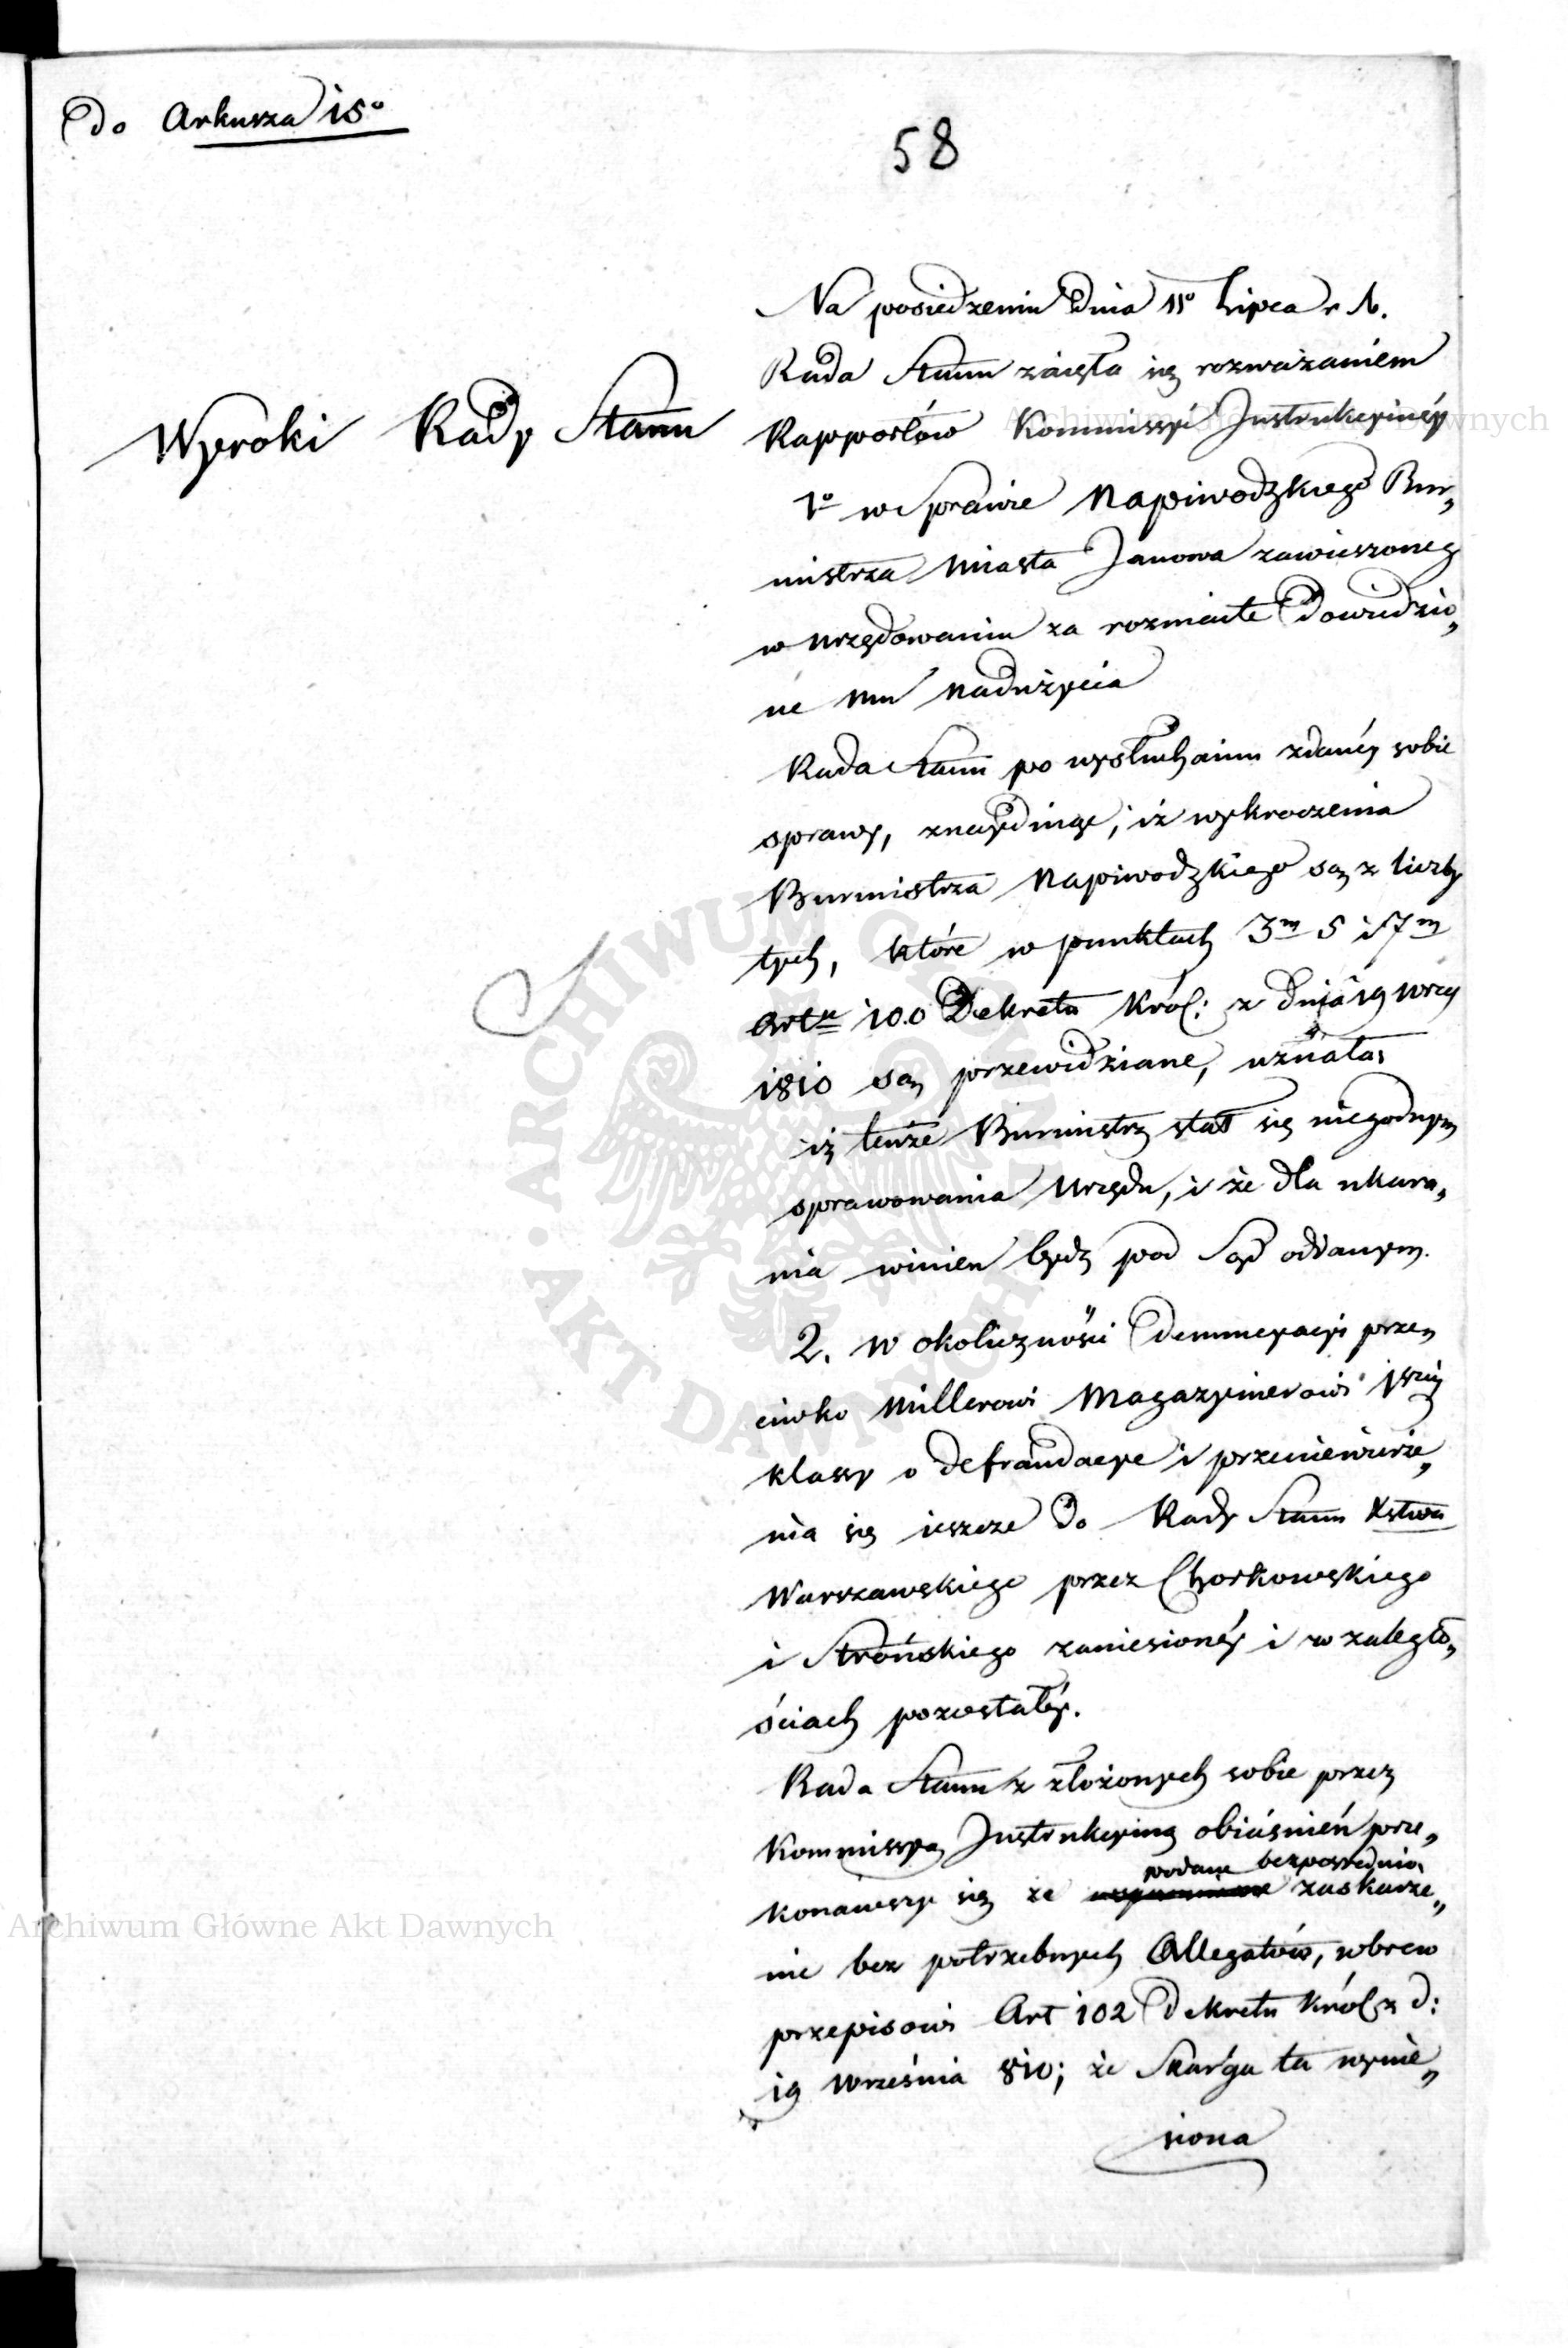 Do Arkusza 15º
58
Wyroki Rady Stanu
Na posiedzeniu dnia 11º Lipca r. b.
Rada Stanu zaięła się rozważaniem
Rapportów Kommissyi Instrukcyinéy
1º w Sprawie Napiwodzkiego Bur„
mistrza Miasta Janowa zawieszoneg
w urzędowaniu za rozmaite Dowiedzio„
ne mu nadużycia
Rada Stanu po wysłuchaniu zdanéy sobie
sprawy, znayduiąc, iż wykroczenia
Burmistrza Napiwodzkiego są z liczby
tych, które w punktach 3m 5 i 7m
Artu 100 Dekretu Król: z dnia 19 wrzś
1810 są przewidziane, uznała,
iż tenże Burmistrz stał się niegodnym
sprawowania Urzędu, i że dla ukara„
nia winien bydź pod Sąd oddanym.
2. W okoliczności Denuncyacyi prze„
ciwko Millerowi Magazynierowi 1wszéy
klassy o defraudacye i przeniewierze„
nia się ieszcze do Rady Stanu Xstwa
Warszawskiego przez Chorkowskiego
i Strońskiego zaniesionéy i w zaległo„
ściach pozostałéy.
Rada Stanu z złożonych sobie przez
Kommissyą Instrukcyiną obiaśnień prze„
podane bezpośrednio
konawszy się że zaskarże„
nie bez potrzebnych Allegatów, wbrew
przepisowi Art 102 Dekretu Król z d:
19 Września 810; że Skarga ta wynie„
siona
Archiwum Główne Akt Dawnych
Archiwum Główne Akt Dawnych
ARCHIWUM GŁÓWNE AKT DAWNYCH